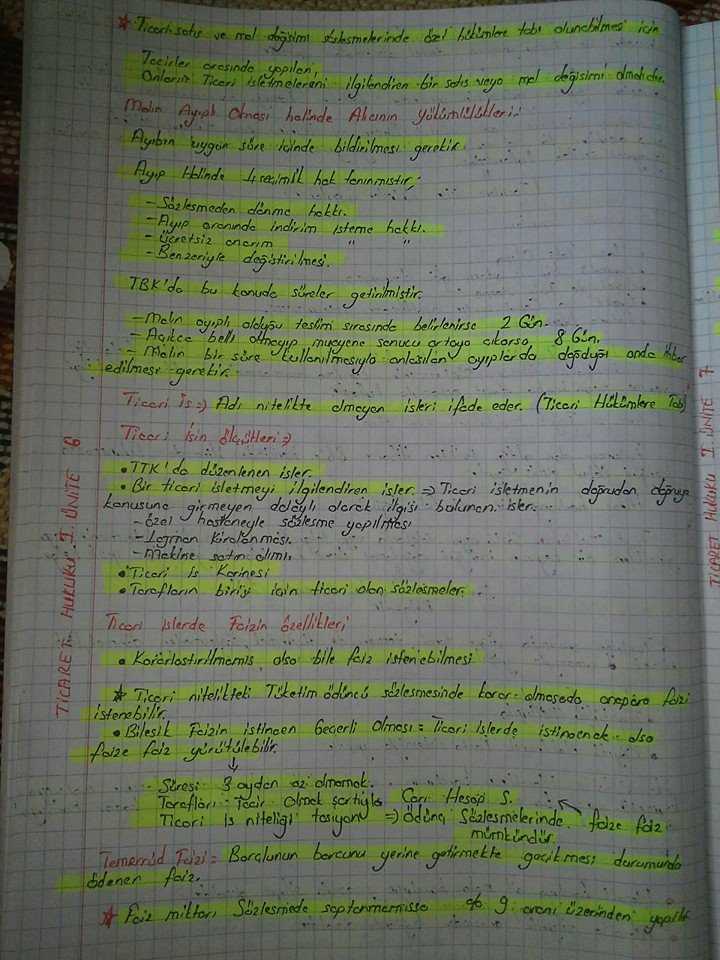 ★ Ticari satış ve mal değişimi sözleşmelerinde özel hükümlere tabi olunabilmesi için
Tacirler arasında yapılan,
Onların Ticari işletmelerini ilgilendiren bir satış veya mal değişimi olmalıdır.
Malın Ayıplı Olması halinde Alıcının Yükümlülükleri:
Ayıbın uygun süre içinde bildirilmesi gerekir.
Ayıp Halinde 4 seçimlik hak tanınmıştır;
- Sözleşmeden dönme hakkı.
- Ayıp oranında indirim isteme hakkı.
- Ücretsiz onarım " "
- Benzeriyle değiştirilmesi.
TBK'da bu konuda süreler getirilmiştir.
- Malın ayıplı olduğu teslim sırasında belirlenirse 2 Gün.
- Açıkca belli olmayıp muayene sonucu ortaya çıkarsa, 8 Gün.
- Malın bir süre kullanılmasıyla anlaşılan ayıplarda doğduğu anda ihbar
edilmesi gerekir.
Ticari İş => Adi nitelikte olmayan işleri ifade eder. (Ticari Hükümlere Tabi)
Ticari İşin Ölçütleri =>
• TTK'da düzenlenen işler.
• Bir ticari işletmeyi ilgilendiren işler. => Ticari işletmenin doğrudan doğruya
konusuna girmeyen dolaylı olarak ilgisi bulunan işler.
- Özel hastaneyle sözleşme yapılması
- Lojman kiralanması.
- Makine satın alımı.
• Ticari İş Karinesi
• Tarafların birisi için ticari olan sözleşmeler.
Ticari işlerde Faizin özellikleri
• Kararlaştırılmamış olsa bile faiz istenebilmesi
★ Ticari nitelikteki Tüketim ödüncü sözleşmesinde karar olmasada anapara faizi
istenebilir.
• Bileşik Faizin istisnaen Geçerli Olması = Ticari işlerde istisnaenak olsa
faize faiz yürütülebilir.
↓
Süresi 3 aydan az olmamak.
Tarafları Tacir Olmak şartıyla Cari Hesap S.
Ticari iş niteliği taşıyan => ödünç Sözleşmelerinde faize faiz
mümkündür.
Temerrüd Faizi = Borçlunun borcunu yerine getirmekte gecikmesi durumunda
ödenen faiz.
★ Faiz miktarı Sözleşmede saptanmamışsa % 9 oranı üzerinden yapılır
TİCARET HUKUKU I. ÜNİTE 6
TİCARET HUKUKU I ÜNİTE 7